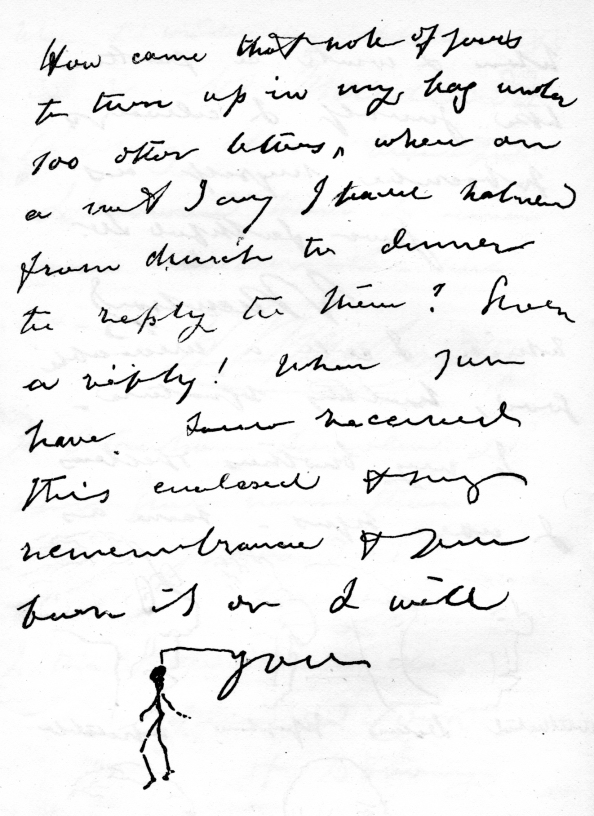 How came that note of yours
to turn up in my bag under
100 other letters, when on
a wet I any I travel between
from church to dinner
to reply to them? Such
a reply! When you
have received
this enclosed & my
remembrance & you
burn it or I will
you